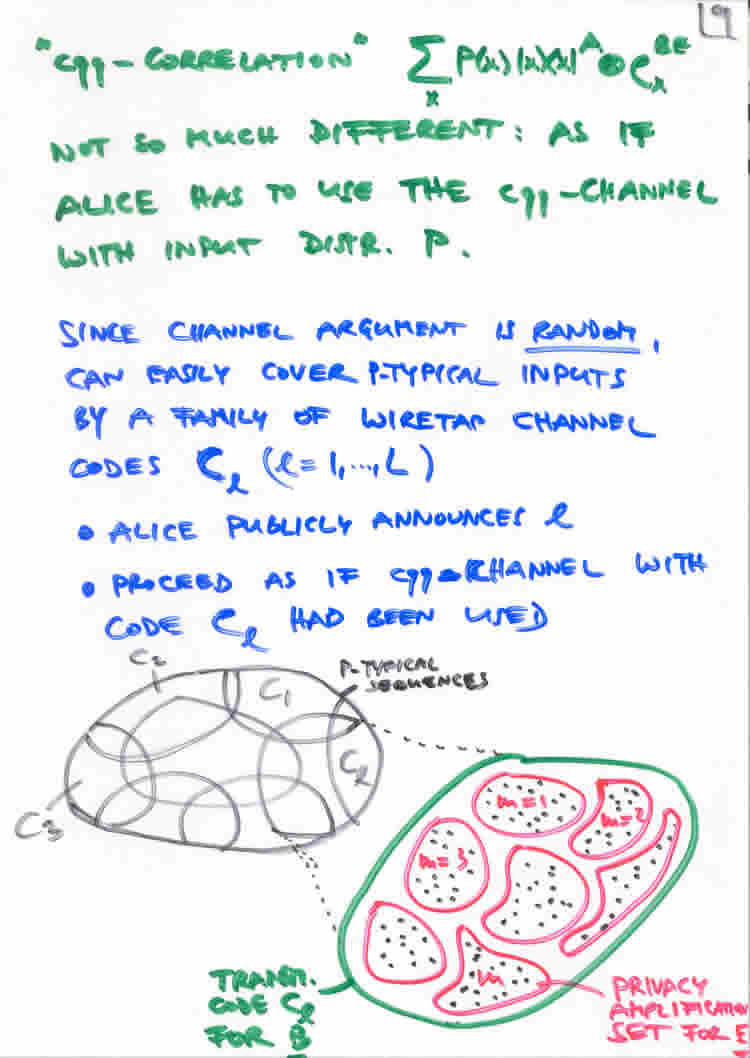 19
"cqq-CORRELATION" ∑ₓ P(x)|x⟩⟨x|ᴬ⊗ρₓᴮᴱ
NOT SO MUCH DIFFERENT: AS IF
ALICE HAS TO USE THE cqq-CHANNEL
WITH INPUT DISTR. P.
SINCE CHANNEL ARGUMENT IS RANDOM,
CAN EASILY COVER P-TYPICAL INPUTS
BY A FAMILY OF WIRETAP CHANNEL
CODES Cℓ (ℓ=1,...,L)
• ALICE PUBLICLY ANNOUNCES ℓ
• PROCEED AS IF cqq-CHANNEL WITH
CODE Cℓ HAD BEEN USED
C₂
C₁
P-TYPICAL
SEQUENCES
Cℓ
C₃
m=1
m=2
m=3
m
TRANSM.
CODE Cℓ
FOR B
PRIVACY
AMPLIFICATION
SET FOR E